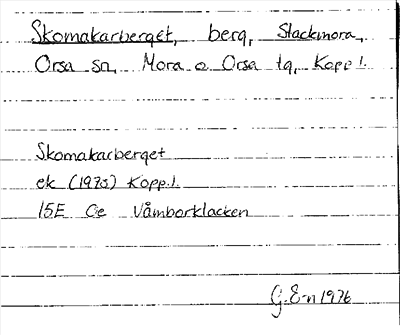 Skomakarberget, berg, Stackmora,
Orsa sn, Mora o Orsa tg, Kopp l.
Skomakarberget
ek (1973) Kopp.l.
15E Oe Våmborklacken
G.E-n 1976